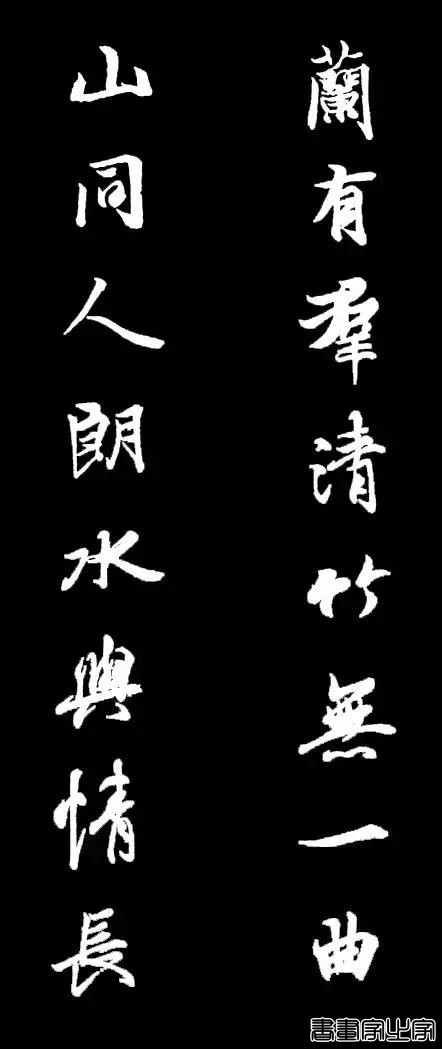 蘭有羣清竹無一曲
山同人朗水與情長
書畫家必家